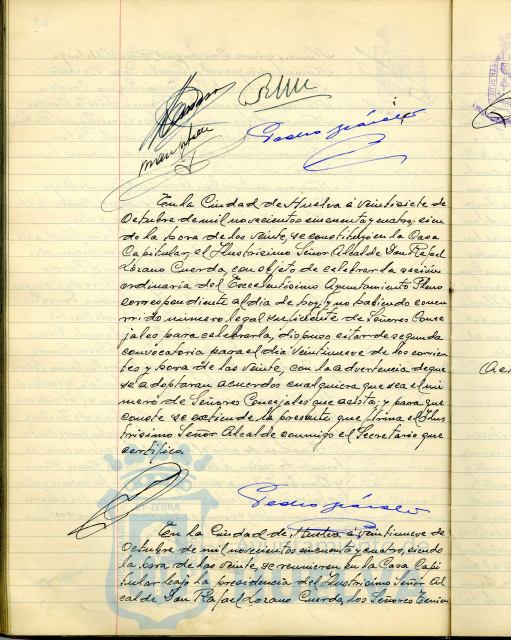 Pedro
En la Ciudad de Huelva á veintisiete de
Octubre de mil novecientos cincuenta y cuatro, sien
do la hora de las veinte, se constituyó en la Casa
Capitular, el Ilustrisimo Señor Alcalde Don Rafael
Lozano Cuerda, con objeto de celebrar la sesión
ordinaria del Excelentísimo Ayuntamiento Pleno
correspondiente al dia de hoy; y no habiendo concu
rrido número legal suficiente de Señores Conce
jales para celebrarla, dispuso citar de segunda
convocatoria para el día veintinueve de los corrien
tes y hora de las veinte, con la advertencia de que
se adoptaran acuerdos cualquiera que sea el nú
mero de Señores Concejales que asista: y para que
conste se extiende la presente que firma el Ilus
trisimo Señor Alcalde conmigo el Secretario que
certifico.
Pedro
En la Ciudad de Huelva á veintinueve de
Octubre de mil novecientos cincuenta y cuatro, siendo
la hora de las veinte, se reunieron en la Casa Capi
tular bajo la presidencia del Ilustrisimo Señor Al
calde Don Rafael Lozano Cuerda, los Señores Tenien